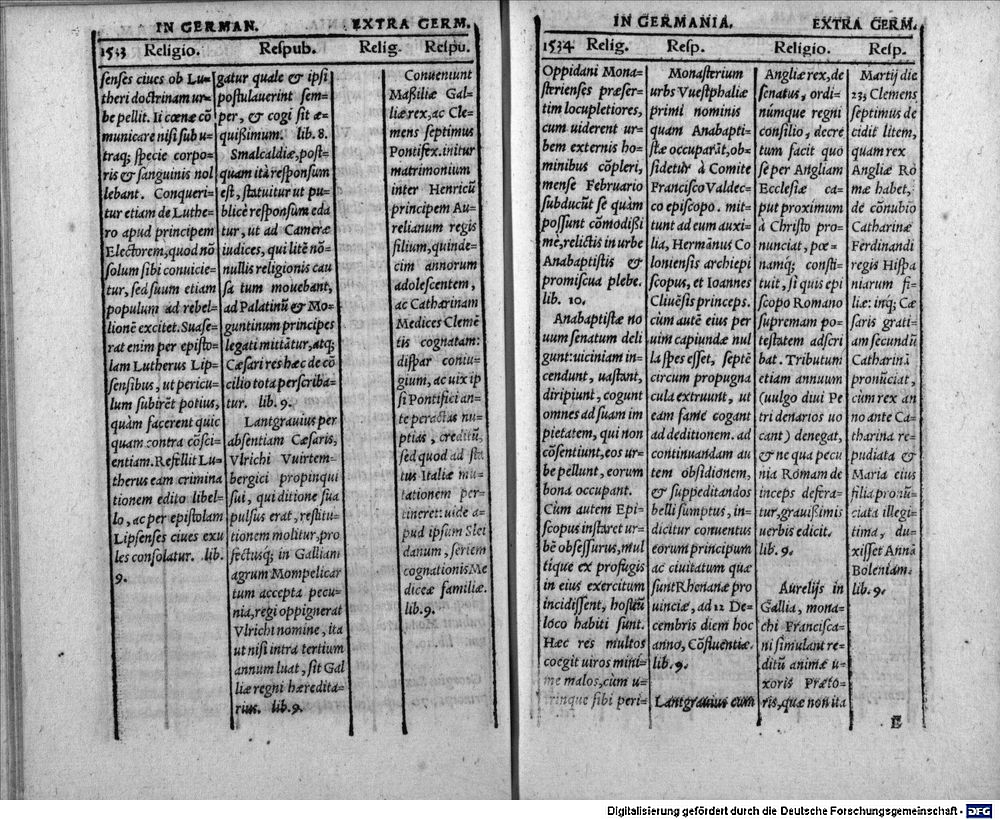 IN GERMAN. EXTRA GERM.
1533 Religio. Respub. Relig. Respu.
senses ciues ob Lu-
theri doctrinam ur-
be pellit. Ii cœnæ cõ
municare nisi sub u-
traq; specie corpo-
ris & sanguinis nol
lebant. Conqueri-
tur etiam de Luthe-
ro apud principem
Electorem, quod nõ
solum sibi conuicie-
tur, sed suum etiam
populum ad rebel-
lionẽ excitet. Suase-
rat enim per episto-
lam Lutherus Lip-
sensibus, ut pericu-
lum subirẽt potius,
quàm facerent quic
quam contra cõsci-
entiam. Refellit Lu-
therus eam crimina
tionem edito libel-
lo, ac per epistolam
Lipsenses ciues exu
les consolatur. lib.
9.
gatur quale & ipsi
postulauerint sem-
per, & cogi sit æ-
quißimum. lib. 8.
Smalcaldiæ, post-
quam ita responsum
est, statuitur ut pu-
blicè responsum eda
tur, ut ad Cameræ
iudices, qui litẽ nõ-
nullis religionis cau
sa tum mouebant,
ad Palatinũ & Mo-
guntinum principes
legati mittãtur, atq;
Cæsari res hæc de cõ
cilio tota perscriba-
tur. lib. 9.
Lantgrauius per
absentiam Cæsaris,
Vlrichi Vuirtem-
bergici propinqui
sui, qui ditione sua
pulsus erat, restitu-
tionem molitur, pro
fectusq; in Galliam
agrum Mompelicar
tum accepta pecu-
nia, regi oppignerat
Vlrichi nomine, ita
ut nisi intra tertium
annum luat, sit Gal
liæ regni hæredita-
rius. lib. 9.
Conueniunt
Maßiliæ Gal-
liæ rex, ac Cle-
mens septimus
Pontifex. initur
matrimonium
inter Henricũ
principem Au-
relianum regis
filium, quinde-
cim annorum
adolescentem,
ac Catharinam
Medices Clemẽ
tis cognatam:
dispar coniu-
gium, ac uix ip
si Pontifici an-
te peractas nu-
ptias, creditũ,
sed quod ad sta
tus Italiæ mu-
tationem per-
tineret: uide a-
pud ipsum Slei
danum, seriem
cognationis Me
diceæ familiæ.
lib. 9.
IN GERMANIA. EXTRA GERM.
1534 Relig. Resp. Religio. Resp.
Oppidani Mona-
sterienses præser-
tim locupletiores,
cum uiderent ur-
bem externis ho-
minibus cõpleri,
mense Februario
subducũt se quàm
possunt cõmodißi
mè, relictis in urbe
Anabaptistis &
promiscua plebe.
lib. 10.
Anabaptistæ no
uum senatum deli
gunt: uiciniam in-
cendunt, uastant,
diripiunt, cogunt
omnes ad suam im
pietatem, qui non
cõsentiunt, eos ur-
be pellunt, eorum
bona occupant.
Cùm autem Epi-
scopus instaret ur-
bẽ obsessurus, mul
tique ex profugis
in eius exercitum
incidissent, hostiũ
loco habiti sunt.
Hæc res multos
coegit uiros mini-
me malos, cùm u-
trinque sibi peri-
Monasterium
urbs Vuestphaliæ
primi nominis
quam Anabapti-
stæ occuparãt, ob-
sidetur à Comite
Francisco Valdec-
co episcopo. mit-
tunt ad eum auxi-
lia, Hermãnus Co
loniensis archiepi
scopus, et Ioannes
Cliuẽsis princeps.
cùm autẽ eius per
uim capiundæ nul
la spes esset, septẽ
circum propugna
cula extruunt, ut
eam famẽ cogant
ad deditionem. ad
continuandam au
tem obsidionem,
& suppeditandos
belli sumptus, in-
dicitur conuentus
eorum principum
ac ciuitatum quæ
sunt Rhenanæ pro
uinciæ, ad 12 De-
cembris diem hoc
anno, Cõfluentiæ.
lib. 9.
Lantgrauius cum
Angliæ rex, de
senatus, ordi-
númque regni
consilio, decre
tum facit quo
se per Angliam
Ecclesiæ ca-
put proximum
à Christo pro-
nunciat, pœ-
namq; consti-
tuit, si quis epi
scopo Romano
supremam po-
testatem adscri
bat. Tributum
etiam annuum
(uulgo diui Pe
tri denarios uo
cant) denegat,
& ne qua pecu
nia Romam de
inceps defera-
tur, grauißimis
uerbis edicit.
lib. 9.
Aurelijs in
Gallia, mona-
chi Francisca-
ni simulant re-
ditũ animæ u-
xoris Præto-
ris, quæ non ita
Martij die
23, Clemens
septimus de
cidit litem,
quam rex
Angliæ Ro
mæ habet,
de cõnubio
Catharinæ
Ferdinandi
regis Hispa
niarum fi-
liæ: inq; Cæ
saris grati-
am secundũ
Catharinã
pronũciat,
cùm rex an
no ante Ca-
tharina re-
pudiata &
Maria eius
filia pronũ-
ciata illegi
tima, du-
xisset Annã
Boleniam.
lib. 9.
E
Digitalisierung gefördert durch die Deutsche Forschungsgemeinschaft - DFG